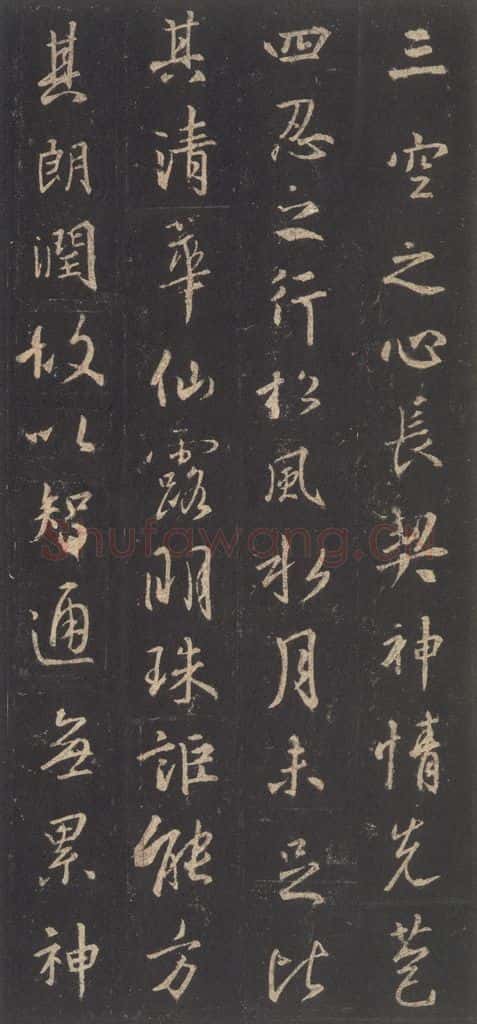 三空之心長契神情先苞
四忍之行松風水月未足比
其清華仙露明珠詎能方
其朗潤故以智通無累神
Shufawang.cn